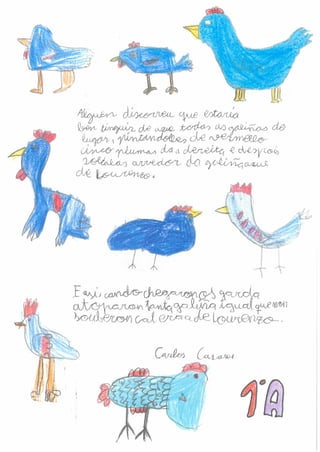 Alguen discorreu que estaria
ben tinguir de azul todas as galiñas do
lugar, pintándolles de vermello
cinco plumas da á dereita e despois
soltalas arredor do galiñeiro
de Lourenzo.
E asi cando chegaron os garda
atoparon tanta galiña igual que non
souberon cal era a de Lourenzo.
Carlos Casares
1ºA